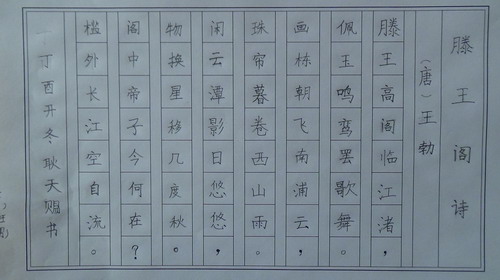 滕王阁诗
（唐）王勃
滕王高阁临江渚，
佩玉鸣鸾罢歌舞。
画栋朝飞南浦云，
珠帘暮卷西山雨。
闲云潭影日悠悠，
物换星移几度秋。
阁中帝子今何在？
槛外长江空自流。
丁酉年冬耿天赐书